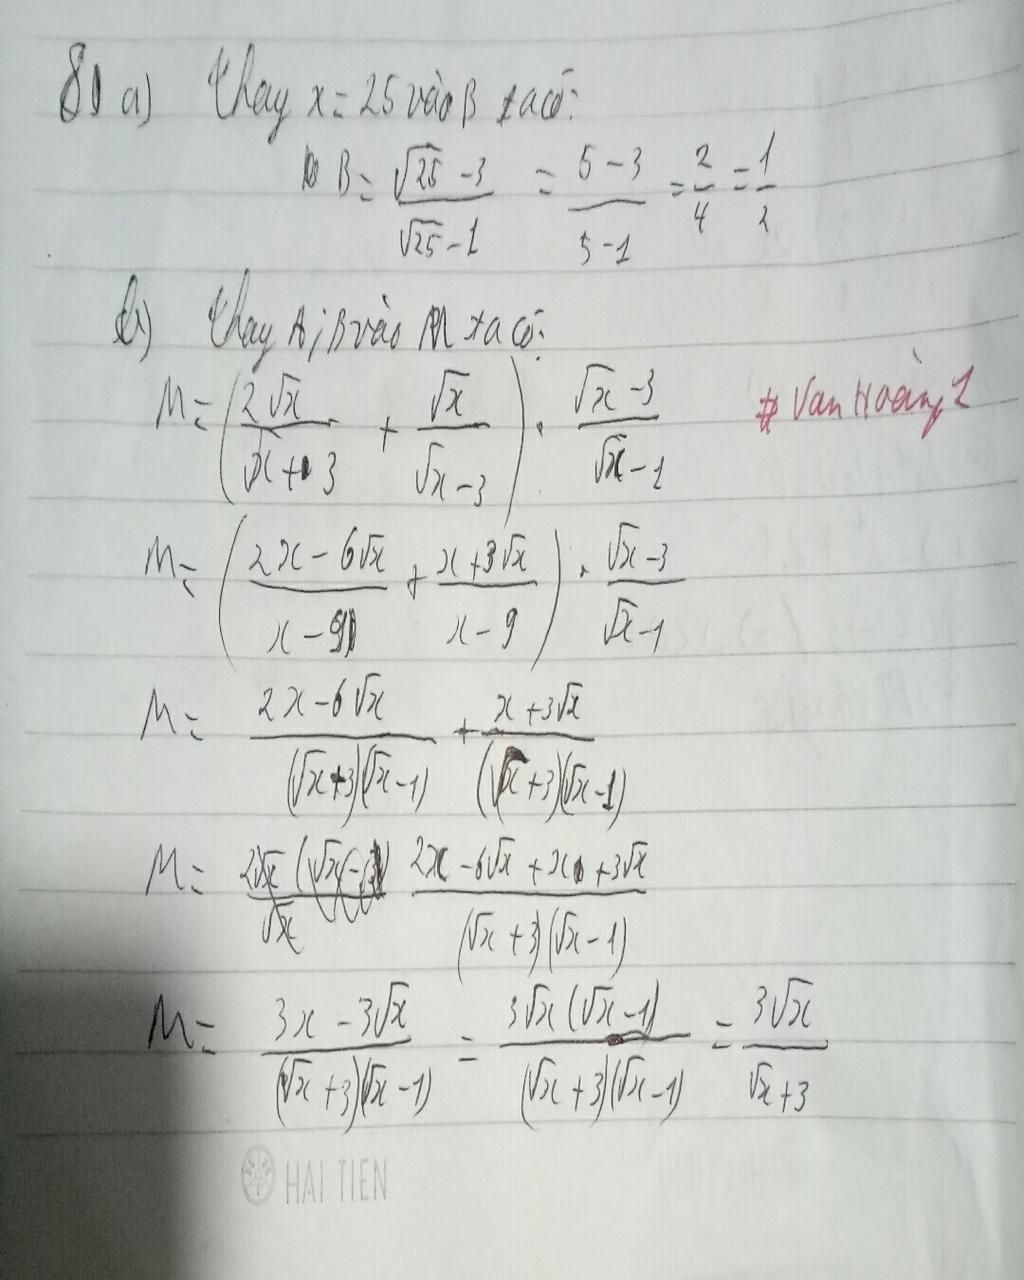 81 a) Thay x = 25 vào B ta có:
B = √25 - 3 / √25 - 1 = 5 - 3 / 5 - 1 = 2/4 = 1/2
b) Thay A; B vào M ta có:
M = (2√x / √x + 3 + √x / √x - 3) . √x - 3 / √x - 1
# Van Hoàng 1
M = (2x - 6√x / x - 9 + x + 3√x / x - 9) . √x - 3 / √x - 1
M = 2x - 6√x / (√x + 3)(√x - 1) + x + 3√x / (√x + 3)(√x - 1)
M = 2x - 6√x + x + 3√x / (√x + 3)(√x - 1)
M = 3x - 3√x / (√x + 3)(√x - 1) = 3√x(√x - 1) / (√x + 3)(√x - 1) = 3√x / √x + 3
HAI TIEN